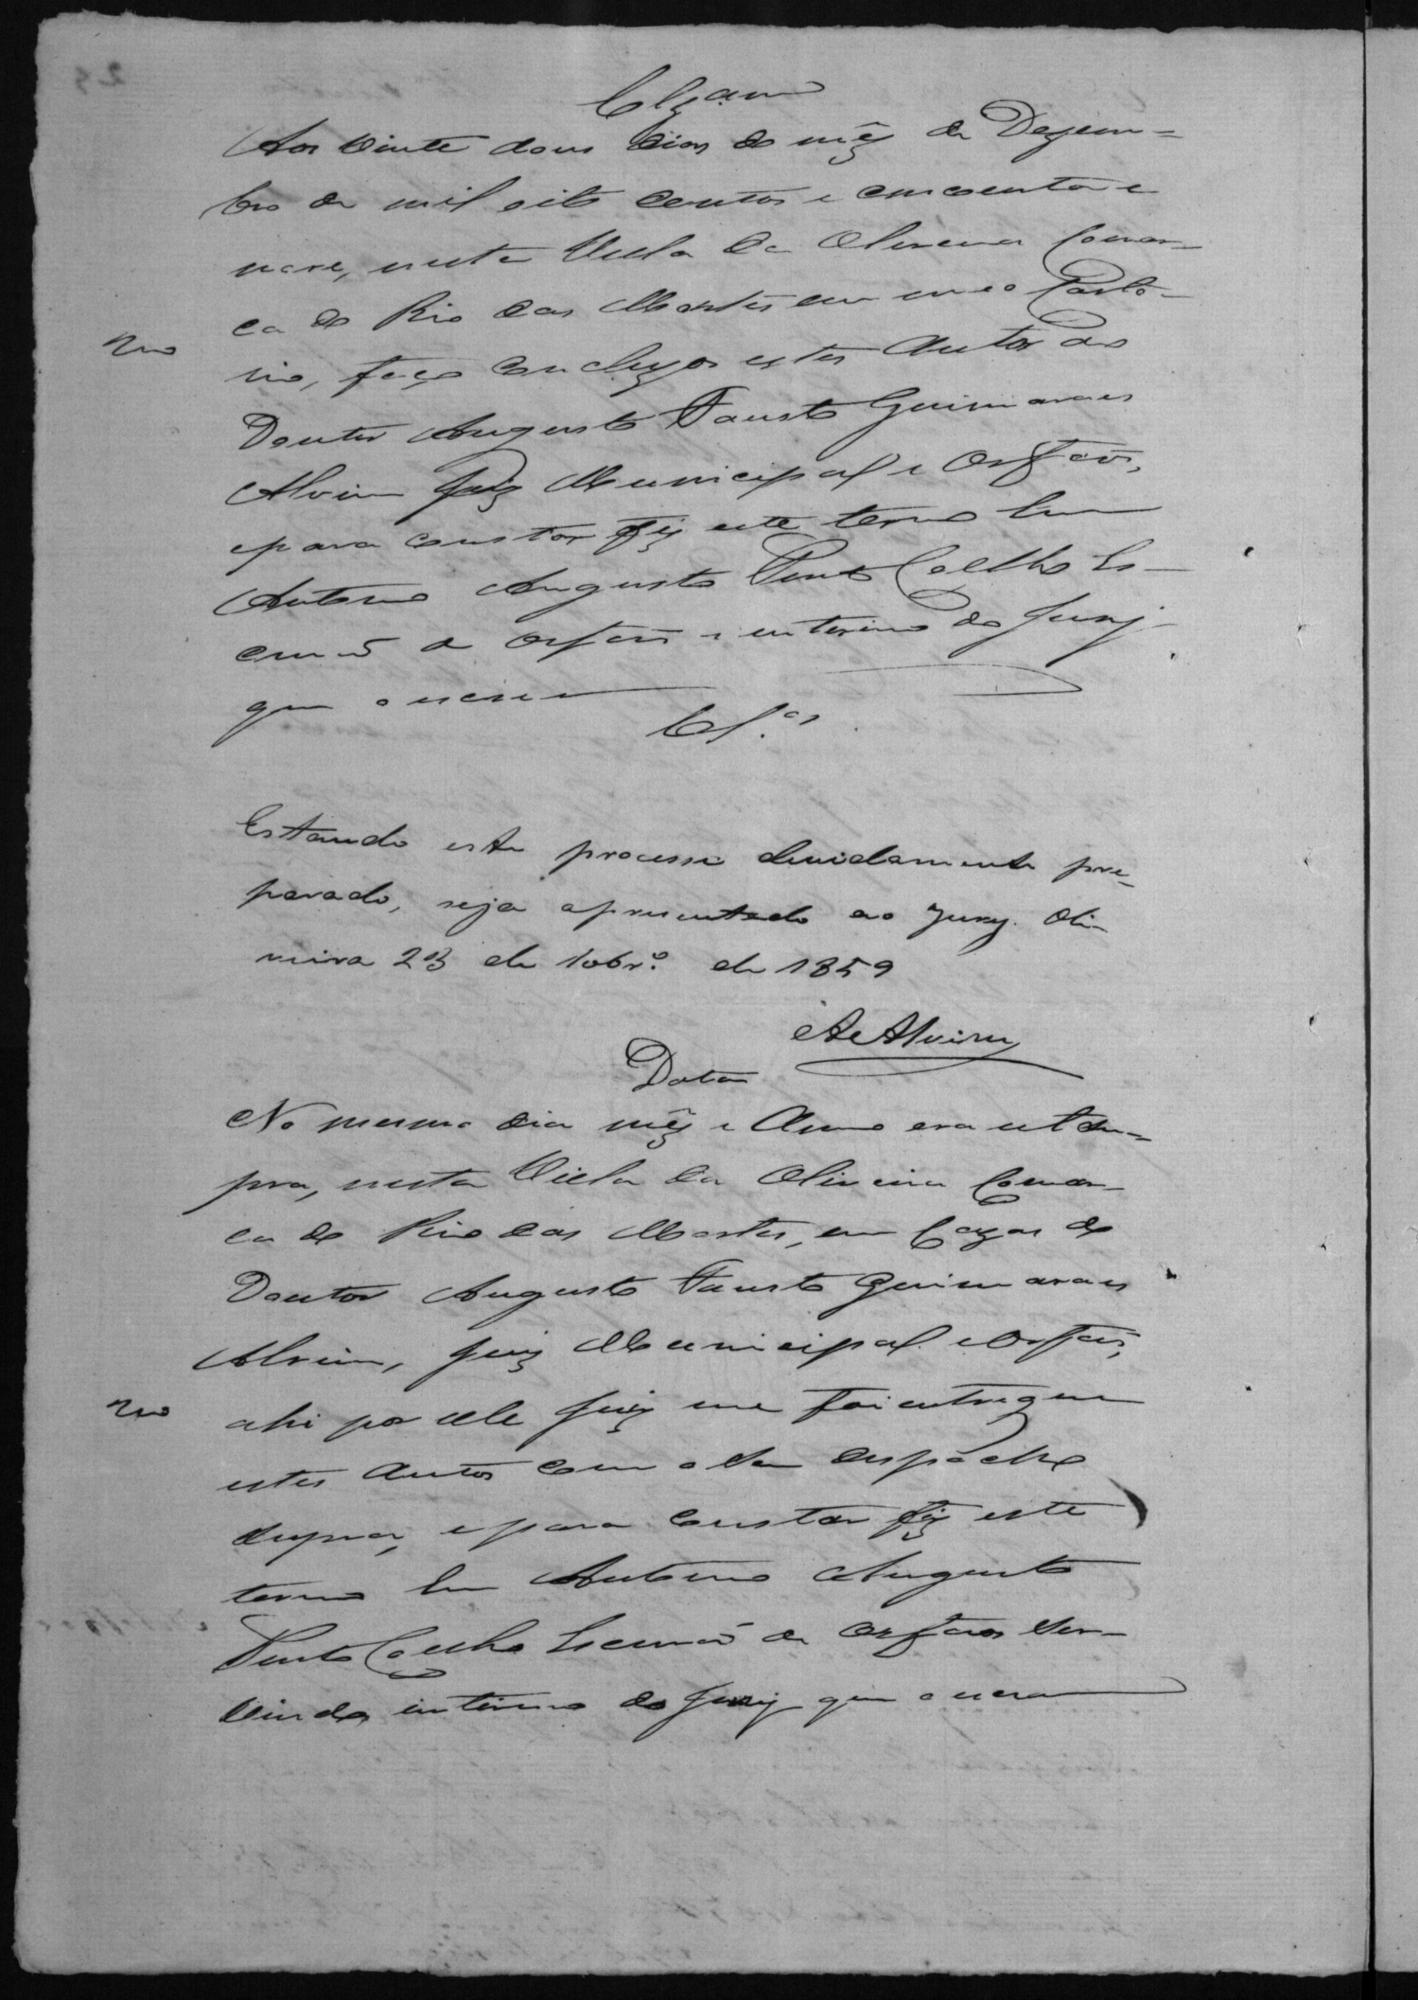 Clzam
Aos Vinte dous dias do mêz de Dezem-
bro de mil oito centos e cincoenta e
nove, nesta Villa da Oliveira Comar-
ca do Rio das Mortes em meo Carto-
200
rio, faço concluzos estes Autos ao
Doutor Augusto Fausto Guimaraes
Alvim Juiz Municipal e Orfaõs,
epara constar fiz este termo Eu
Antonio Augusto Pinto Coelho Es-
crivaõ de orfaõs e interino do Jury
que o escrevi
Cl.os
Estando este processo devidamente pre-
parado, seja apresentado ao Jury. Oli-
veira 23 de 10br.o de 1859
AeAlvim
Data
No mesmo dia mêz e Anno era ut su-
pra, nesta Villa da Oliveira Comar-
ca do Rio das Mortes, em Cazas do
Doutor Augusto Fausto Guimaraes
Alvim, Juiz Municipal e Orfaõs,
200
ahi por ele Juiz me foi entregue
estes Autos com o seu despacho
supra, epara constar fiz este
termo Eu Antonio Augusto
Pinto Coelho Escrivaõ de Orfaos ser-
vindo interino do Jury que o escrevi